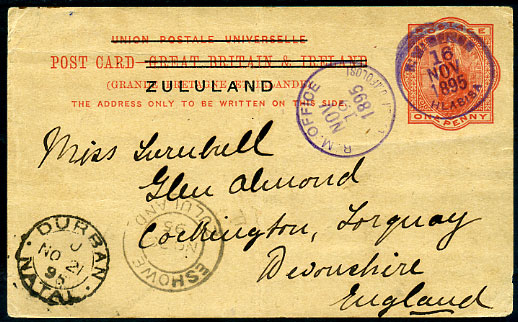 UNION POSTALE UNIVERSELLE
POST CARD GREAT BRITAIN & IRELAND
(GRANDE BRETAGNE ET IRLANDE)
ZULULAND
THE ADDRESS ONLY TO BE WRITTEN ON THIS SIDE.
POSTAGE
ONE PENNY
16
NOV
1895
HLABISA
R. M. OFFICE
NOV
1895
Miss Turnbull
Glen Almond
Cockington, Torquay
Devonshire
England
DURBAN
NO 21
95
NATAL
ESHOWE
ZULULAND
95